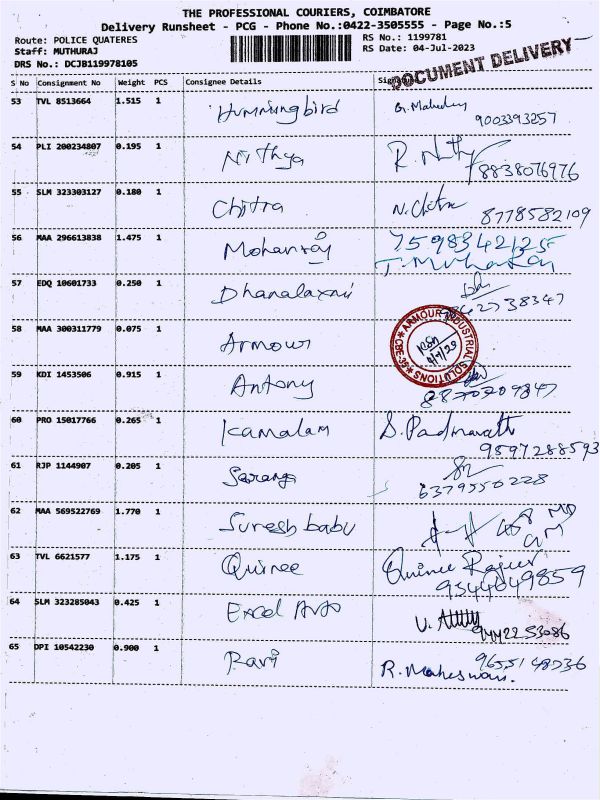 THE PROFESSIONAL COURIERS, COIMBATORE
Delivery Runsheet - PCG - Phone No.:0422-3505555 - Page No.:5
Route: POLICE QUATERES
RS No.: 1199781
Staff: MUTHURAJ
RS Date: 04-Jul-2023
DRS No.: DCJB119978105
DOCUMENT DELIVERY
S No Consignment No Weight PCS Consignee Details
53 TVL 8513664 1.515 1 Hummingbird
9003393257
54 PLI 200234807 0.195 1 Nithya
8838076976
55 SLM 323303127 0.180 1 Chitra N. Chitra
8778582109
56 MAA 296613838 1.475 1 Mohanraj 7598342125
57 EDQ 10601733 0.250 1 Dhanalaxmi
58 MAA 300311779 0.075 1 Armour ARMOUR INDUSTRIAL SOLUTIONS
59 KDI 1453506 0.915 1 Antony
60 PRO 15017766 0.265 1 Kamalam
9597288593
61 RJP 1144907 0.205 1
6379550228
62 MAA 569522769 1.770 1 Suresh babu
63 TVL 6621577 1.175 1 Quinee Quinee
9544049859
64 SLM 323285043 0.425 1 Excel Auto
9442253086
65 DPI 10542230 0.900 1 Ravi
R. Maheswari.